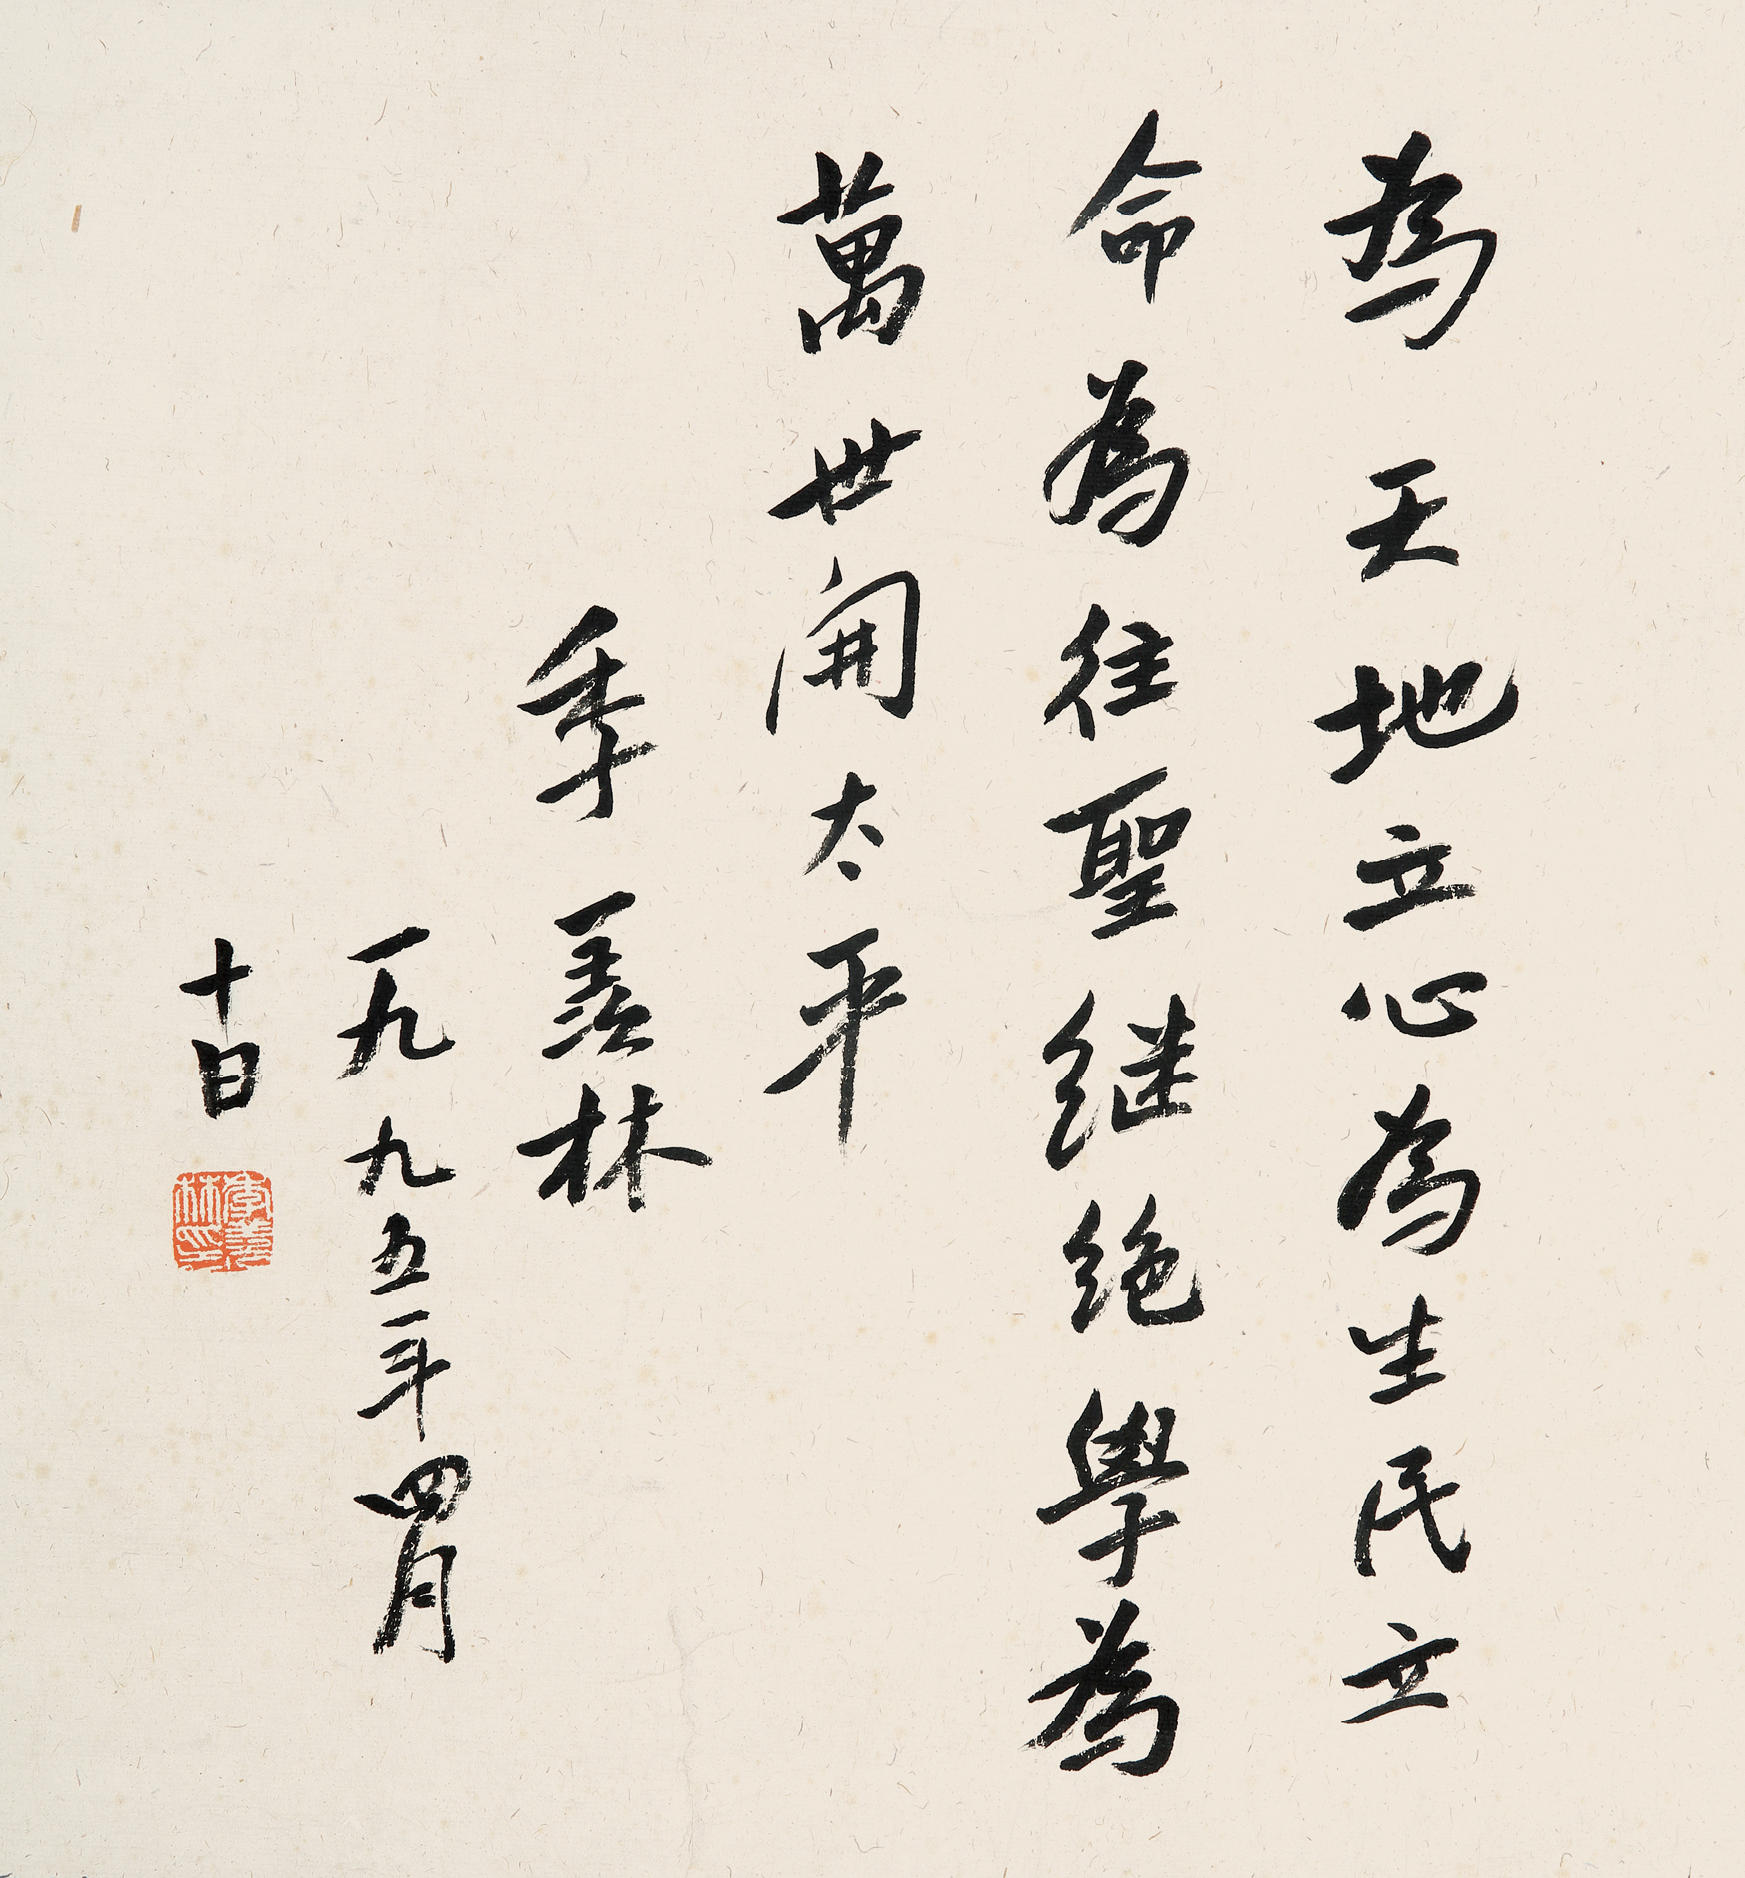 為天地立心為生民立
命為往聖继绝學為
萬世開太平
季羨林
一九九五年四月
十日
季羨林印